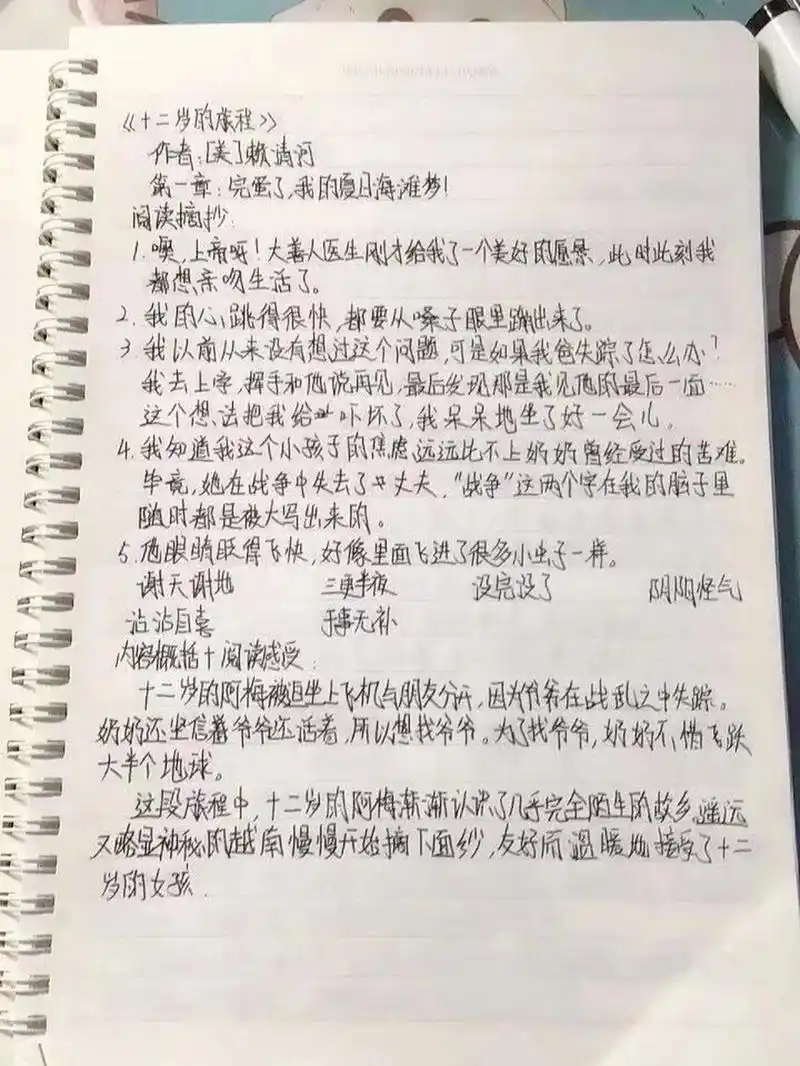 《十二岁的旅程》
作者:[美]赖清河
第一章:完蛋了,我的夏日海滩梦!
阅读摘抄:
1.噢,上帝呀!大善人医生刚才给我了一个美好的愿景,此时此刻我
都想亲吻生活了。
2.我的心跳得很快,都要从嗓子眼里蹦出来了。
3.我以前从来没有想过这个问题,可是如果我爸失踪了怎么办?
我去上学,挥手和他说再见,最后发现那是我见他的最后一面……
这个想法把我给吓坏了,我呆呆地坐了好一会儿。
4.我知道我这个小孩子的焦虑,远远比不上奶奶曾经受过的苦难。
毕竟,她在战争中失去了丈夫,"战争"这两个字在我的脑子里
随时都是被大写出来的。
5.他眼睛眨得飞快,好像里面飞进了很多小虫子一样。
谢天谢地 三更半夜 没完没了 阴阳怪气
沾沾自喜 于事无补
内容概括+阅读感受:
十二岁的阿梅被迫坐上飞机与朋友分开,因为爷爷在战乱之中失踪。
奶奶还坚信着爷爷还活着,所以想找爷爷。为了找爷爷,奶奶不惜飞跃
大半个地球。
这段旅程中,十二岁的阿梅渐渐认识了几乎完全陌生的故乡,遥远
又略显神秘的越南慢慢开始摘下面纱,友好而温暖地接受了十二
岁的女孩.